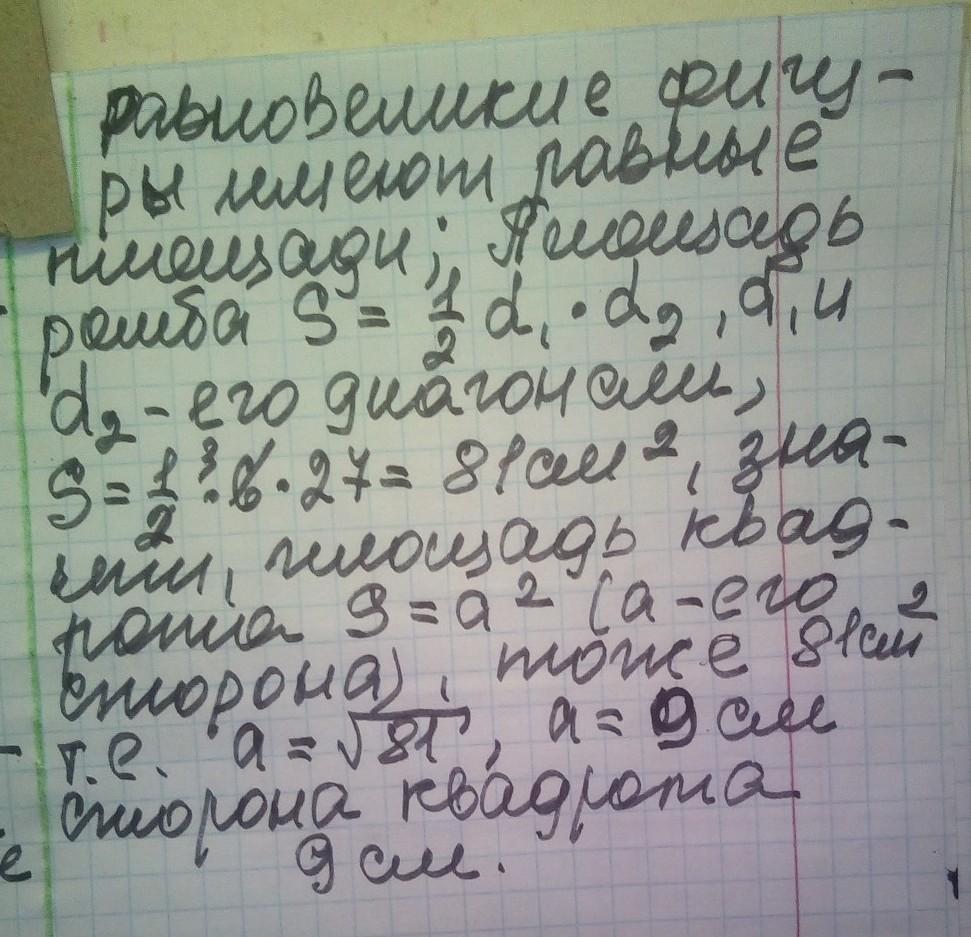 равновеликие фигу-
ры имеют равные
площади; Площадь
ромба S = 1/2 d₁ · d₂ , d₁ и
d₂ - его диагонали,
S = 1/2 · 6̸³ · 27 = 81 см², зна-
чит, площадь квад-
рата S = a² (a - его
сторона), тоже 81 см²
т.е. a = √81, a = 9 см
сторона квадрата
9 см.